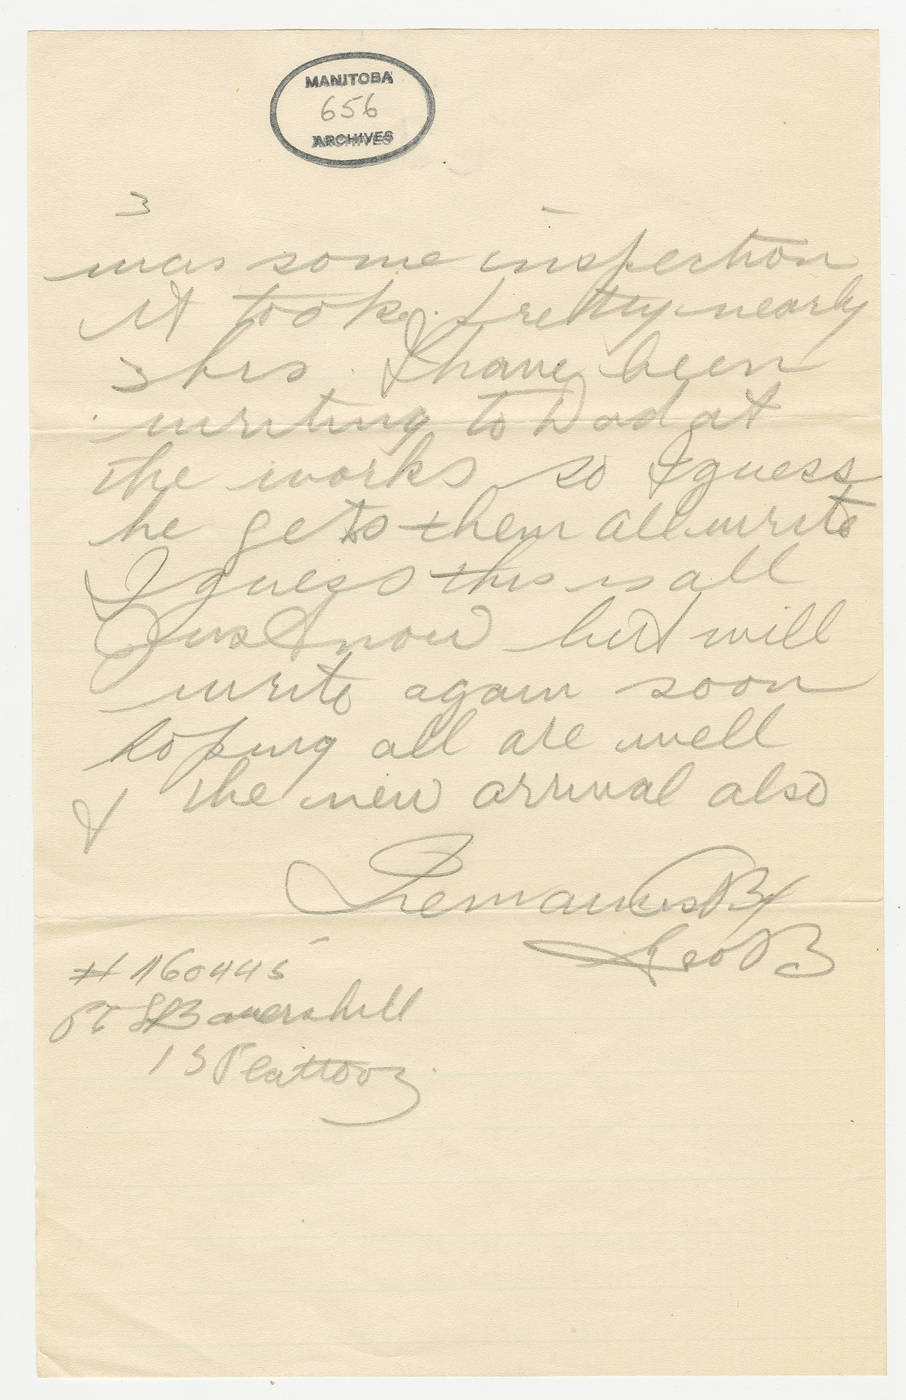 MANITOBA
656
ARCHIVES
3
was some inspection
it took pretty nearly
3 hrs. I have been
writing to Dad at
the works so I guess
he gets them all write
I guess this is all
Just now but will
write again soon
hoping all are well
& the new arrival also
I remain us By
Geo B
# A60445
Pt G Bauershill
13 Plattoon